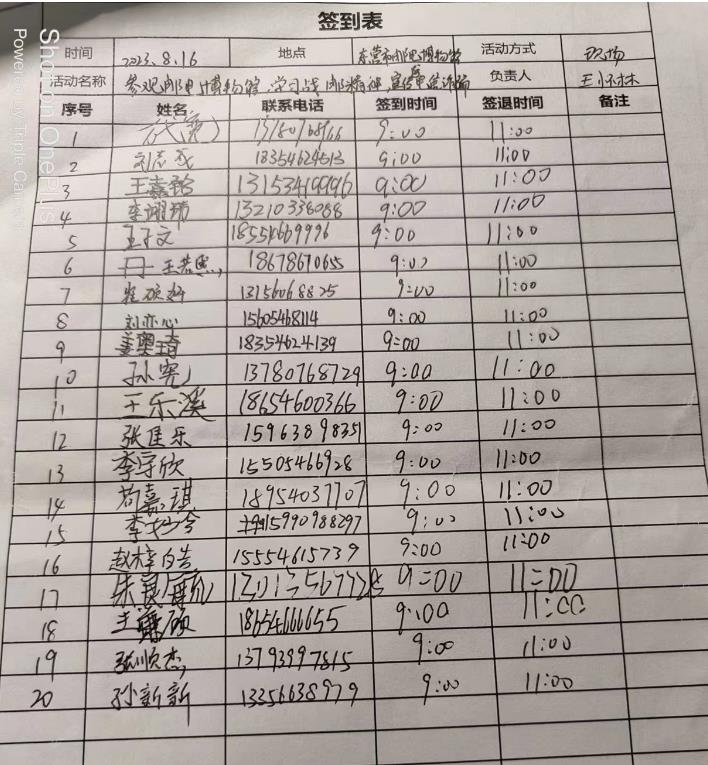 签到表
时间 2023.8.16 地点 东营市 博物馆 活动方式 现场
活动名称 参观 博物馆,学习战 精神, 负责人 王怀林
序号 姓名 联系电话 签到时间 签退时间 备注
1 9:00 11:00
2 刘志成 18354624513 9:00 11:00
3 王嘉铭 13153419996 9:00 11:00
4 李翊菲 13210338088 9:00 11:00
5 王子文 18554669996 9:00 11:00
6 王若恩 18678670655 9:00 11:00
7 崔硕妍 13156068825 9:00 11:00
8 刘亦心 15605468114 9:00 11:00
9 姜奥琦 18354624139 9:00 11:00
10 孙宪 13780768729 9:00 11:00
11 王乐溪 18654600366 9:00 11:00
12 张佳乐 15963898351 9:00 11:00
13 李宇欣 15505466928 9:00 11:00
14 苟嘉琪 18954037707 9:00 11:00
15 15990988297 9:00 11:00
16 赵梓皓 15554615739 9:00 11:00
17 朱 9:00 11:00
18 王 硕 18654666655 9:00 11:00
19 张顺杰 13793997815 9:00 11:00
20 孙新新 13356638979 9:00 11:00
Shot on OnePlus
Powered by Triple Camera